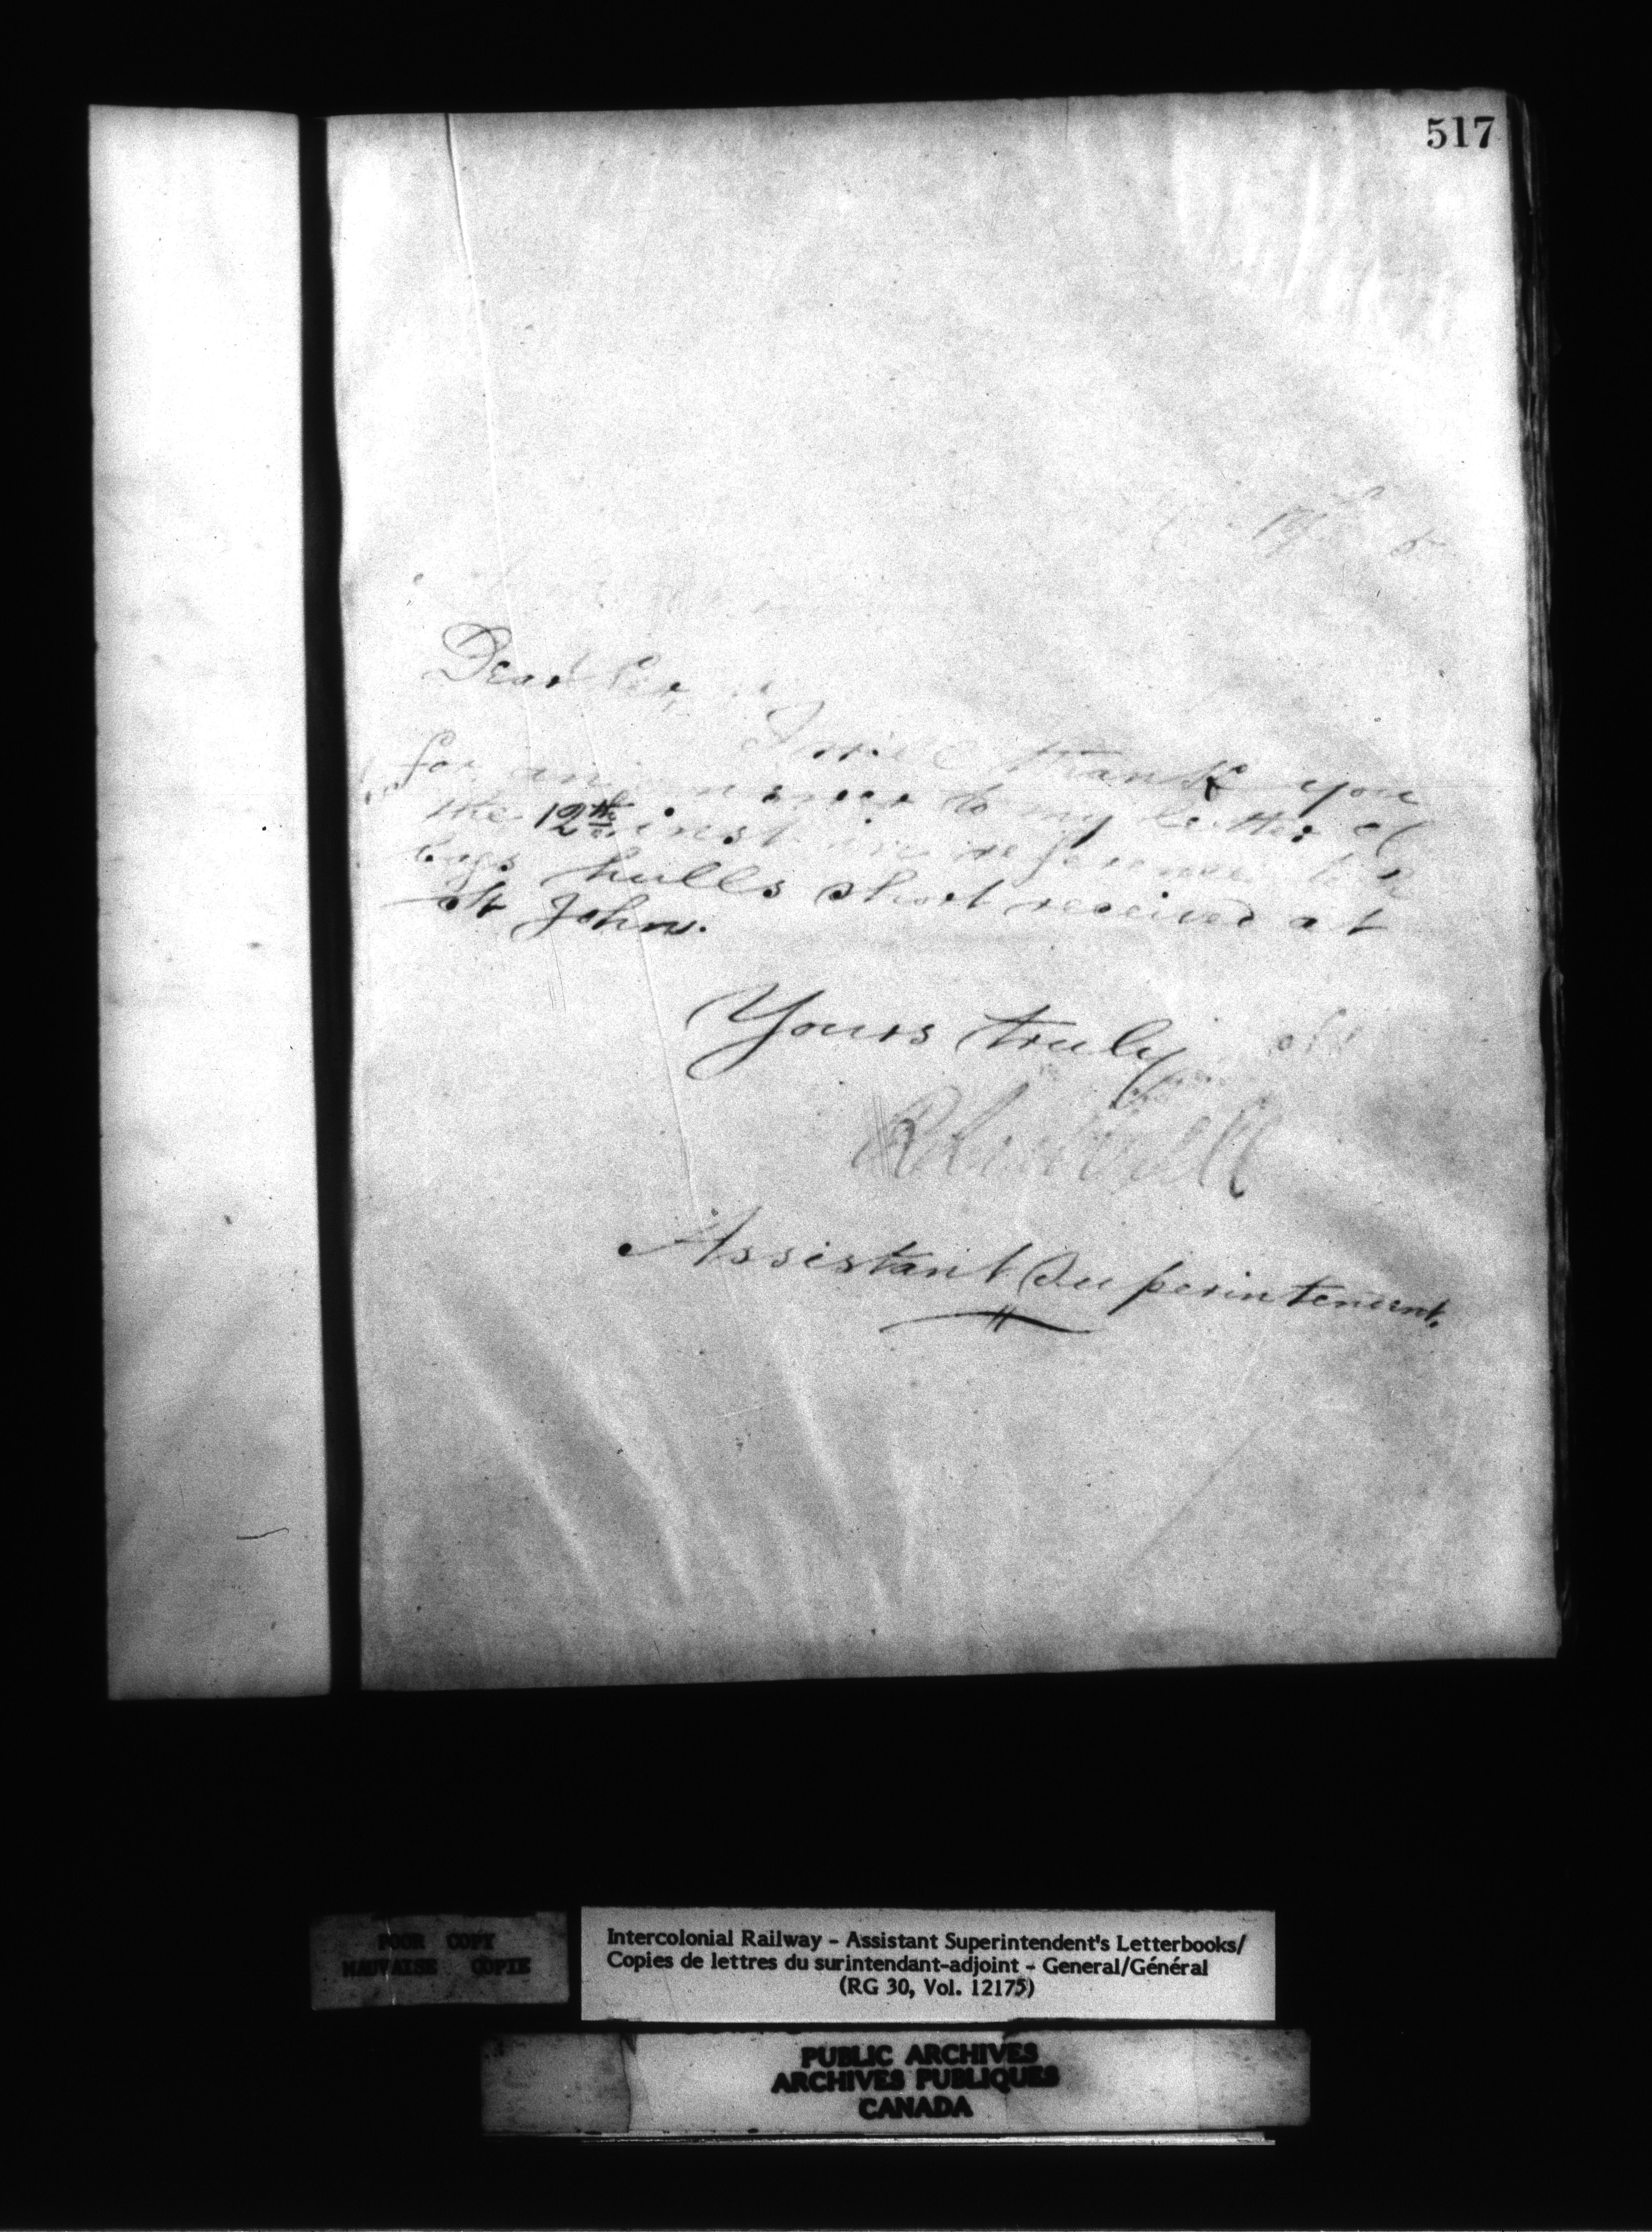 517
19th
Dear Sir,
I will thank you
for an answer to my letter of
the 12th inst in reference to 2
bags hulls short received at
St John.
Yours truly
Assistant Superintendent.
POOR COPY
MAUVAISE COPIE
Intercolonial Railway - Assistant Superintendent's Letterbooks/
Copies de lettres du surintendant-adjoint - General/Général
(RG 30, Vol. 12175)
PUBLIC ARCHIVES
ARCHIVES PUBLIQUES
CANADA